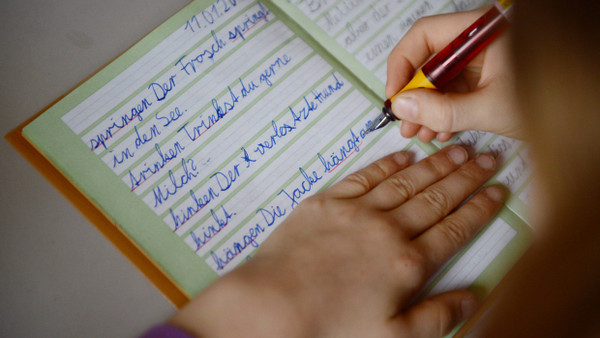 11.01.20
springen Der Frosch springt
in den See.
trinken Trinkst du gerne
Milch?
hinken Der verletzte Hund
hinkt.
hängen Die Jacke hängt am
aber der
einen